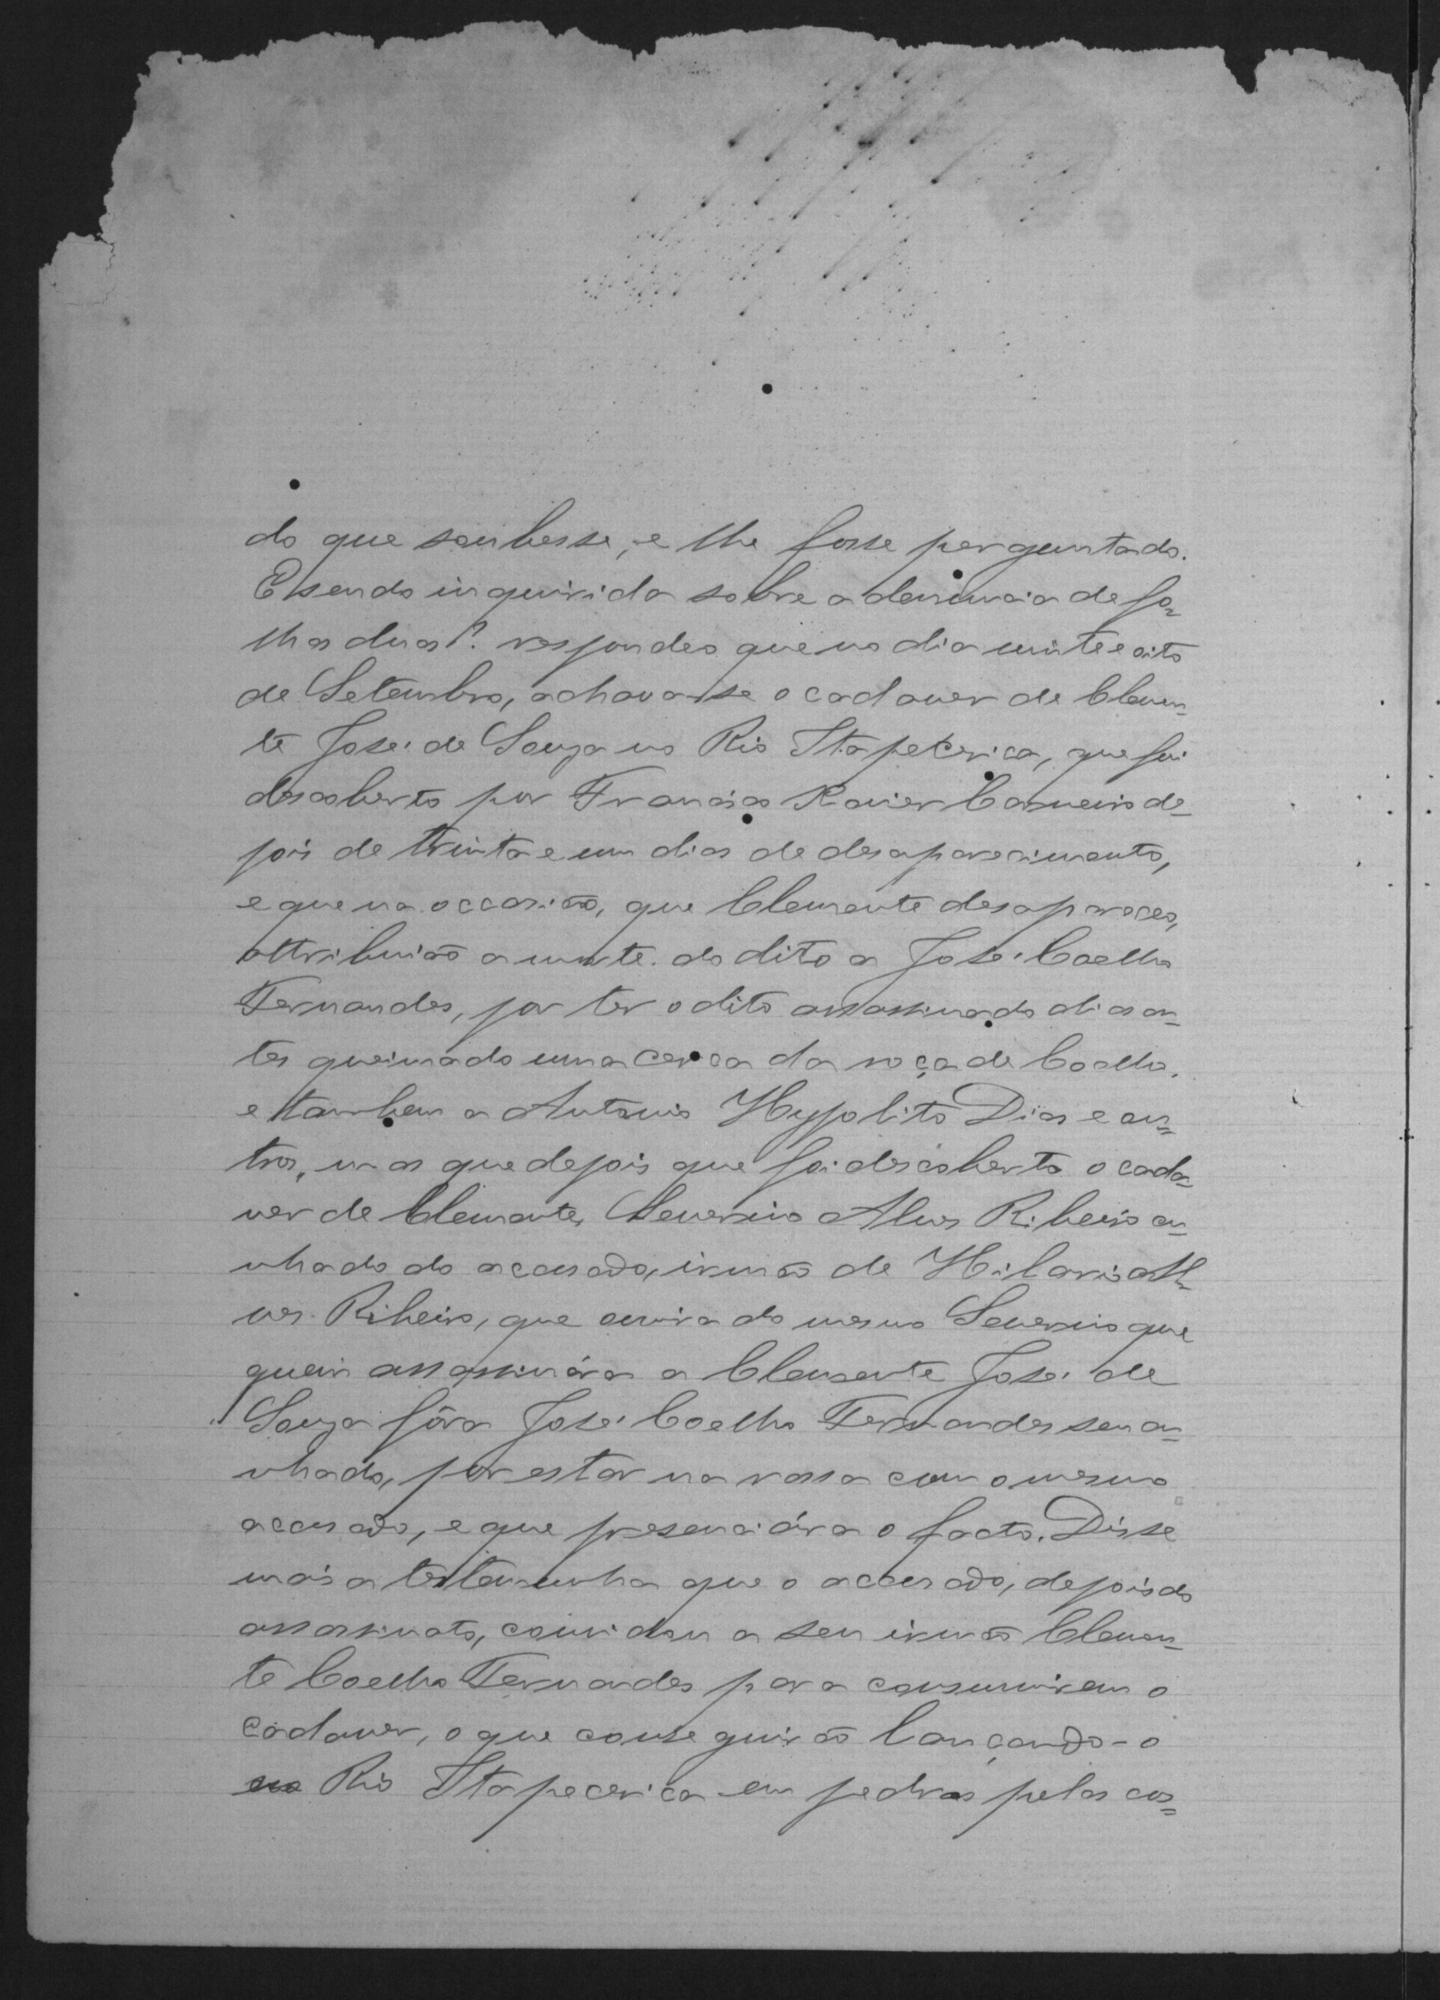 do que soubesse, e lhe fosse perguntado.
E sendo inquirida sobre a denuncia de fo=
lhas duas? respondeo que no dia vinte e oito
de Setembro, achava-se o cadaver de Clemen=
te José de Souza no Rio Itapecerica, que foi
descoberto por Francisco Xavier Carneiro de=
pois de trinta e um dias de desaparecimento,
e que na occasião, que Clemente desapareceo,
attribuirão a morte do dito a José Coelho
Fernandes, por ter o dito assassinado dias an=
tes queimado uma cerca da roça de Coelho,
e tambem a Antonio Hypolito Dias e ou=
tros, mas que depois que foi descoberto o cada=
ver de Clemente, Severino Alves Ribeiro cu=
nhado do accusado, irmão de Hilario Al=
ves Ribeiro, que ouvira do mesmo Severino que
quem assassinára a Clemente José de
Souza fôra José Coelho Fernandes seu cu=
nhado, por estar na rossa com o mesmo
accusado, e que presenciára o facto. Disse
mais a testemunha que o accusado, depois do
assassinato, convidou a seu irmão Clemen=
te Coelho Fernandes para consumirem o
cadaver, o que conseguirão lançando-o
no Rio Itapecerica em pedras pelas cos=